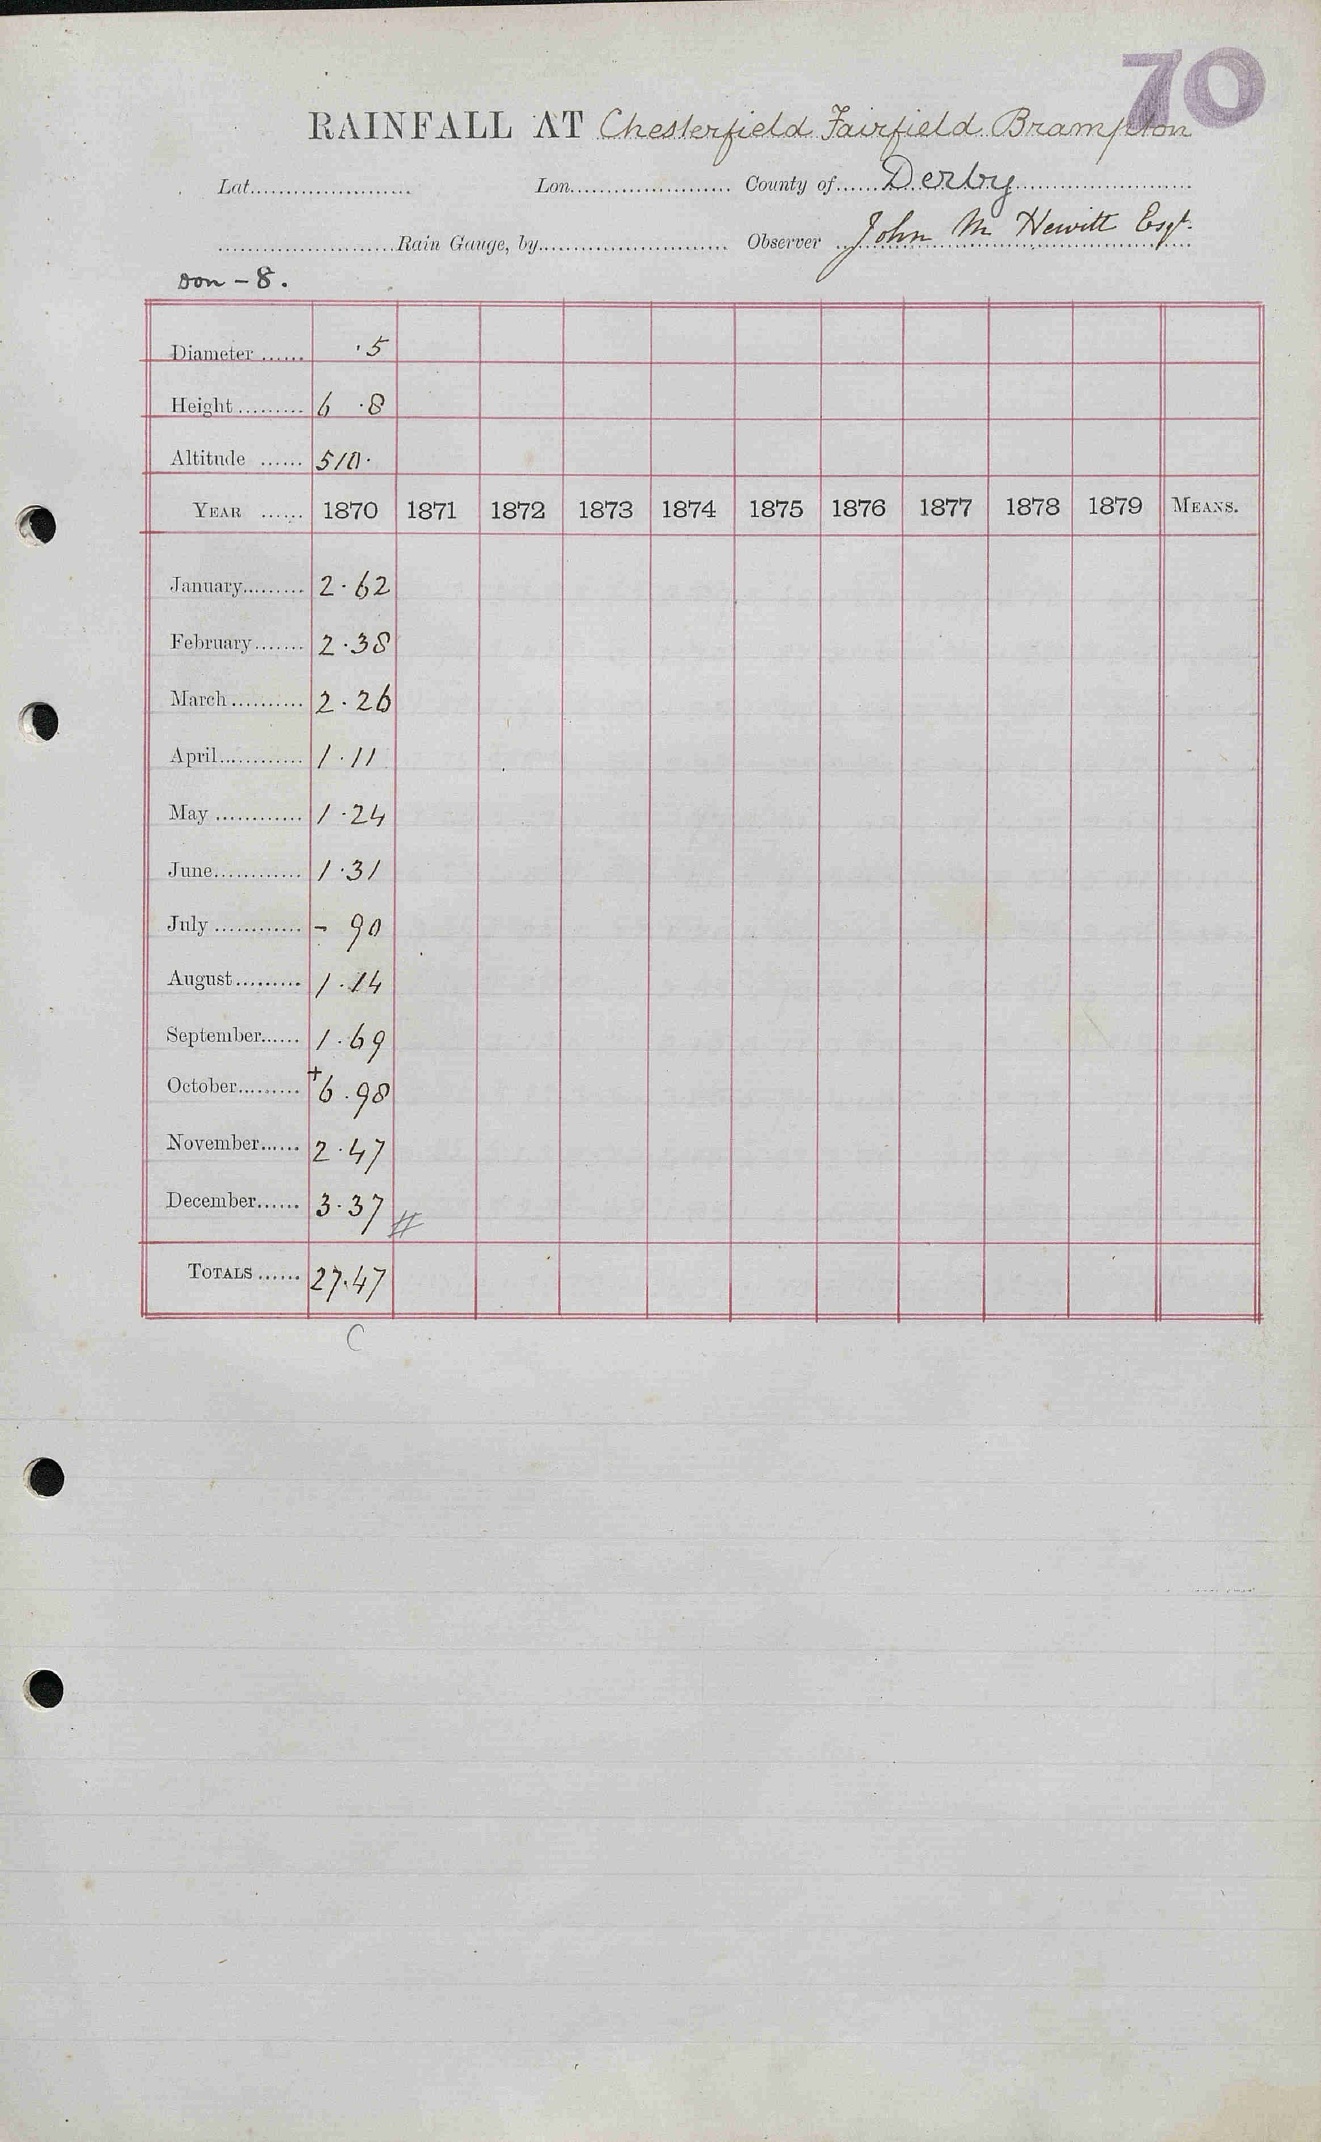 70
RAINFALL AT Chesterfield Fairfield Brampton
Lat...................... Lon...................... County of......Derby......................
......................Rain Gauge, by...................... Observer John M Hewitt Esqr.
Don - 8.
Diameter ...... ·5
Height......... 6 ·8
Altitude ...... 510·
YEAR ...... 1870 1871 1872 1873 1874 1875 1876 1877 1878 1879 MEANS.
January......... 2·62
February....... 2·38
March.......... 2·26
April............ 1·11
May ............ 1·24
June............ 1·31
July ............ - 90
August......... 1·14
September...... 1·69
October......... +6·98
November...... 2·47
December...... 3·37 #
TOTALS ...... 27·47
C